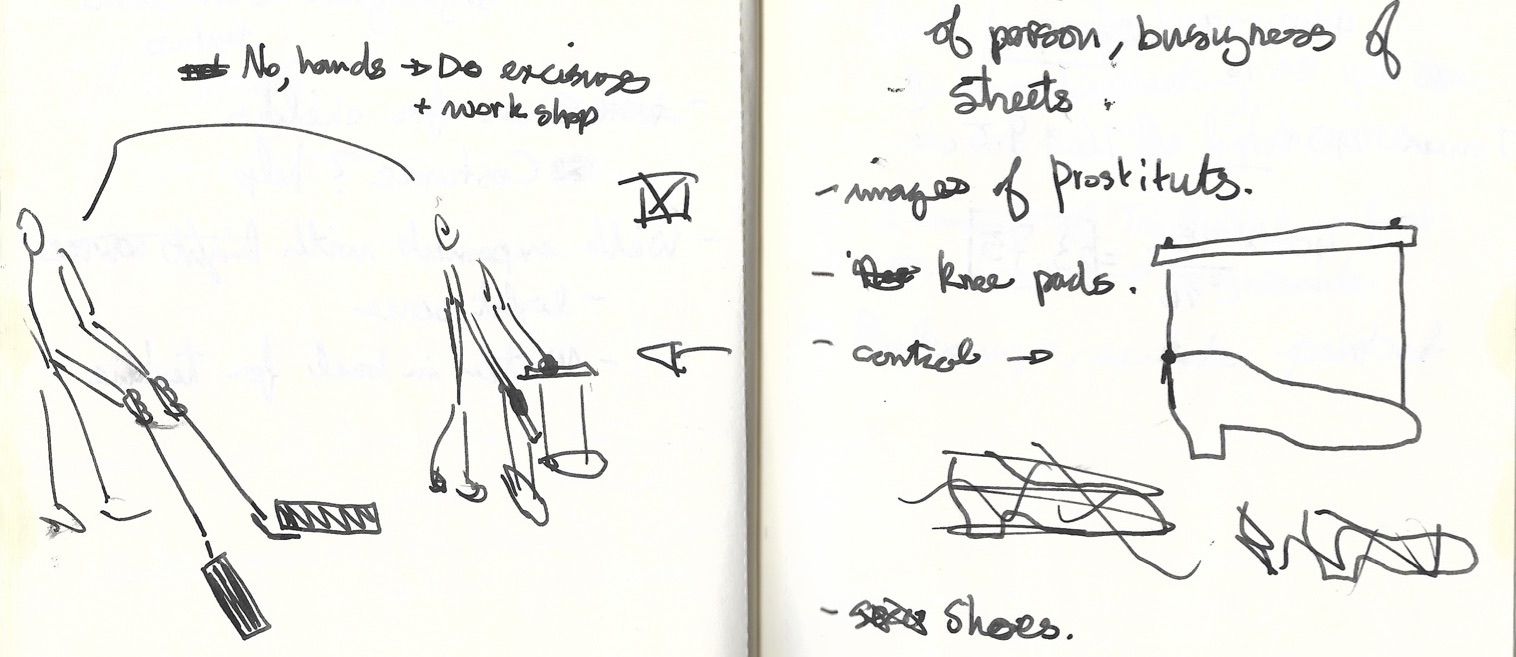 No, hands → Do excisinos
+ work shop
of person, busyness of
streets.
- images of Prostituts.
- knee pads.
- control →
- Shoes.